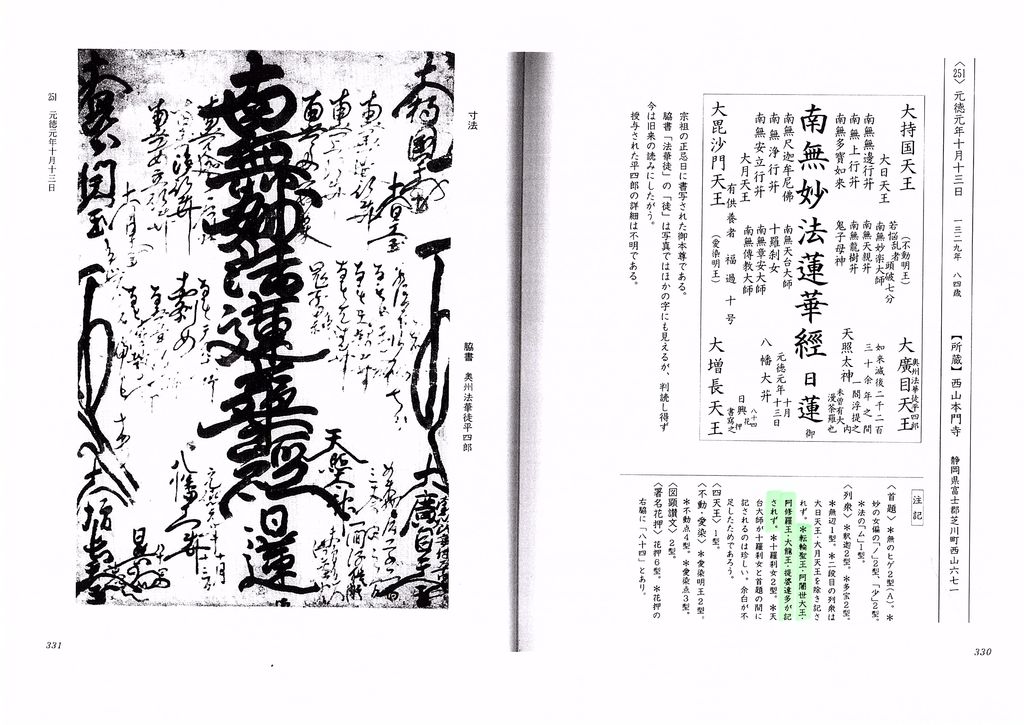 〈251〉元徳元年十月十三日 一三二九年 八四歳 【所蔵】西山本門寺 静岡県富士郡芝川町西山六七一
大持国天王
大日天王
南無無邊行菩薩
南無上行菩薩
南無多寶如来
南無妙法蓮華經 日蓮 御
南無尺迦牟尼佛
南無浄行菩薩
南無安立行菩薩
大月天王
有供養者 福過十号
大毘沙門天王
(不動明王)
若悩乱者 頭破七分
南無妙楽大師
南無天親菩薩
南無龍樹菩薩
鬼子母神
南無天台大師
十羅刹女
南無章安大師
南無傳教大師
(愛染明王)
奥州法華徒平四郎
大廣目天王
如来滅後二千二百
三十余年之間
一閻浮提之内
未曽有大
漫荼羅也
天照太神
八幡大菩薩
元徳元年十月
十三日
八十四
日興 花押
書寫之
大増長天王
宗祖の正忌日に書写された御本尊である。
脇書「法華徒」の「徒」は写真ではほかの字にも見えるが、判読し得ず
今は旧来の読みにしたがう。
授与された平四郎の詳細は不明である。
注記
〈首題〉＊無のヒゲ2型(A)。＊
妙の女偏の「ノ」2型、「少」2型。
＊法の「ム」1型。
〈列衆〉＊釈迦2型。＊多宝2型。
＊無辺1型。＊二段目の列衆は
大日天王・大月天王を除き記さ
れず。＊転輪聖王・阿闍世大王・
阿修羅王・大龍王・提婆達多が記
されず。＊十羅刹女2型。＊天
台大師が十羅刹女と首題の間に
記されるのは珍しい。余白が不
足したためであろう。
〈四天王〉1型。
〈不動・愛染〉＊愛染明王2型。
＊不動点4型。＊愛染点3型。
〈図顕讃文〉2型。
〈署名花押〉花押6型。＊花押の
右脇に「八十四」とあり。
330
寸法
脇書 奥州法華徒平四郎
南無妙法蓮華經 日蓮
大持國天王
大日天王
大廣目天王
天照太神
八幡大菩薩
大毘沙門天王
251 元徳元年十月十三日
331